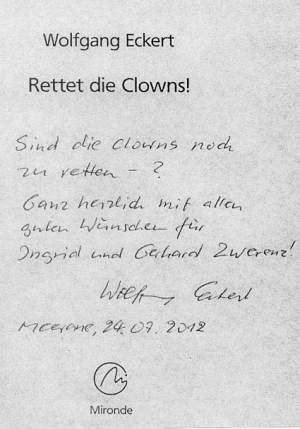 Wolfgang Eckert
Rettet die Clowns!
Sind die Clowns noch
zu retten – ?
Ganz herzlich mit allen
guten Wünschen für
Ingrid und Gerhard Zwerenz!
Wolfgang Eckert
Meerane, 24.07.2012
Mironde